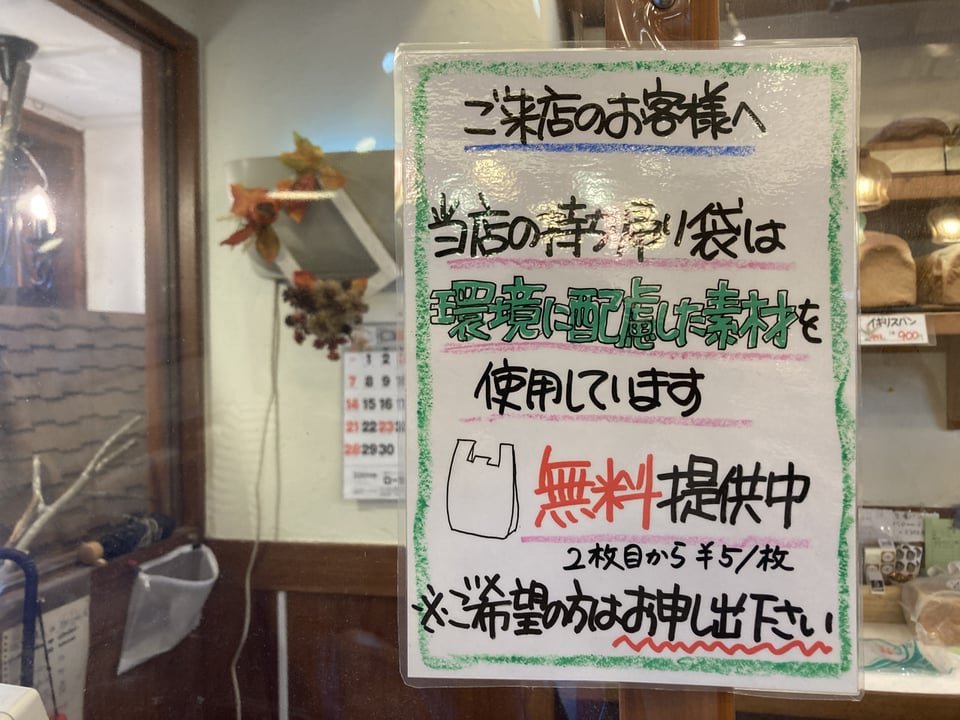 ご来店のお客様へ
当店の持ち帰り袋は
環境に配慮した素材を
使用しています
無料提供中
2枚目から ¥5/枚
※ご希望の方はお申し出下さい
イギリスパン
900円
1 2
7 8 9
14 15 16
21 22 23
28 29 30